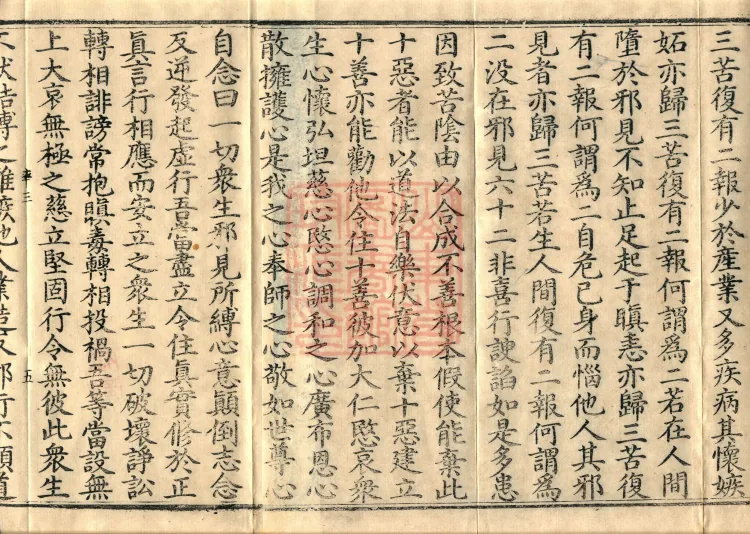 三苦復有二報少於產業又多疾病其懷嫉
妬亦歸三苦復有二報何謂爲二若在人間
墮於邪見不知止足起于瞋恚亦歸三苦復
有二報何謂爲二自危已身而惱他人其邪
見者亦歸三苦若生人間復有二報何謂爲
二没在邪見六十二非喜行諛諂如是多患
因致苦陰由以合成不善根本假使能棄此
十惡者能以道法自樂伏意以棄十惡建立
十善亦能勸他令住十善彼加大仁愍哀衆
生心懷弘坦慈心愍心調和之心廣布恩心
散擁護心是我之心奉師之心敬如世尊心
自念曰一切衆生邪見所縛心意顚倒志念
反逆發起虛行吾當盡立令住眞實修於正
眞言行相應而安立之衆生一切破壞諍訟
轉相誹謗常抱瞋毒轉相投禍吾等當設無
上大哀無極之慈立堅固行令無彼此衆生
五